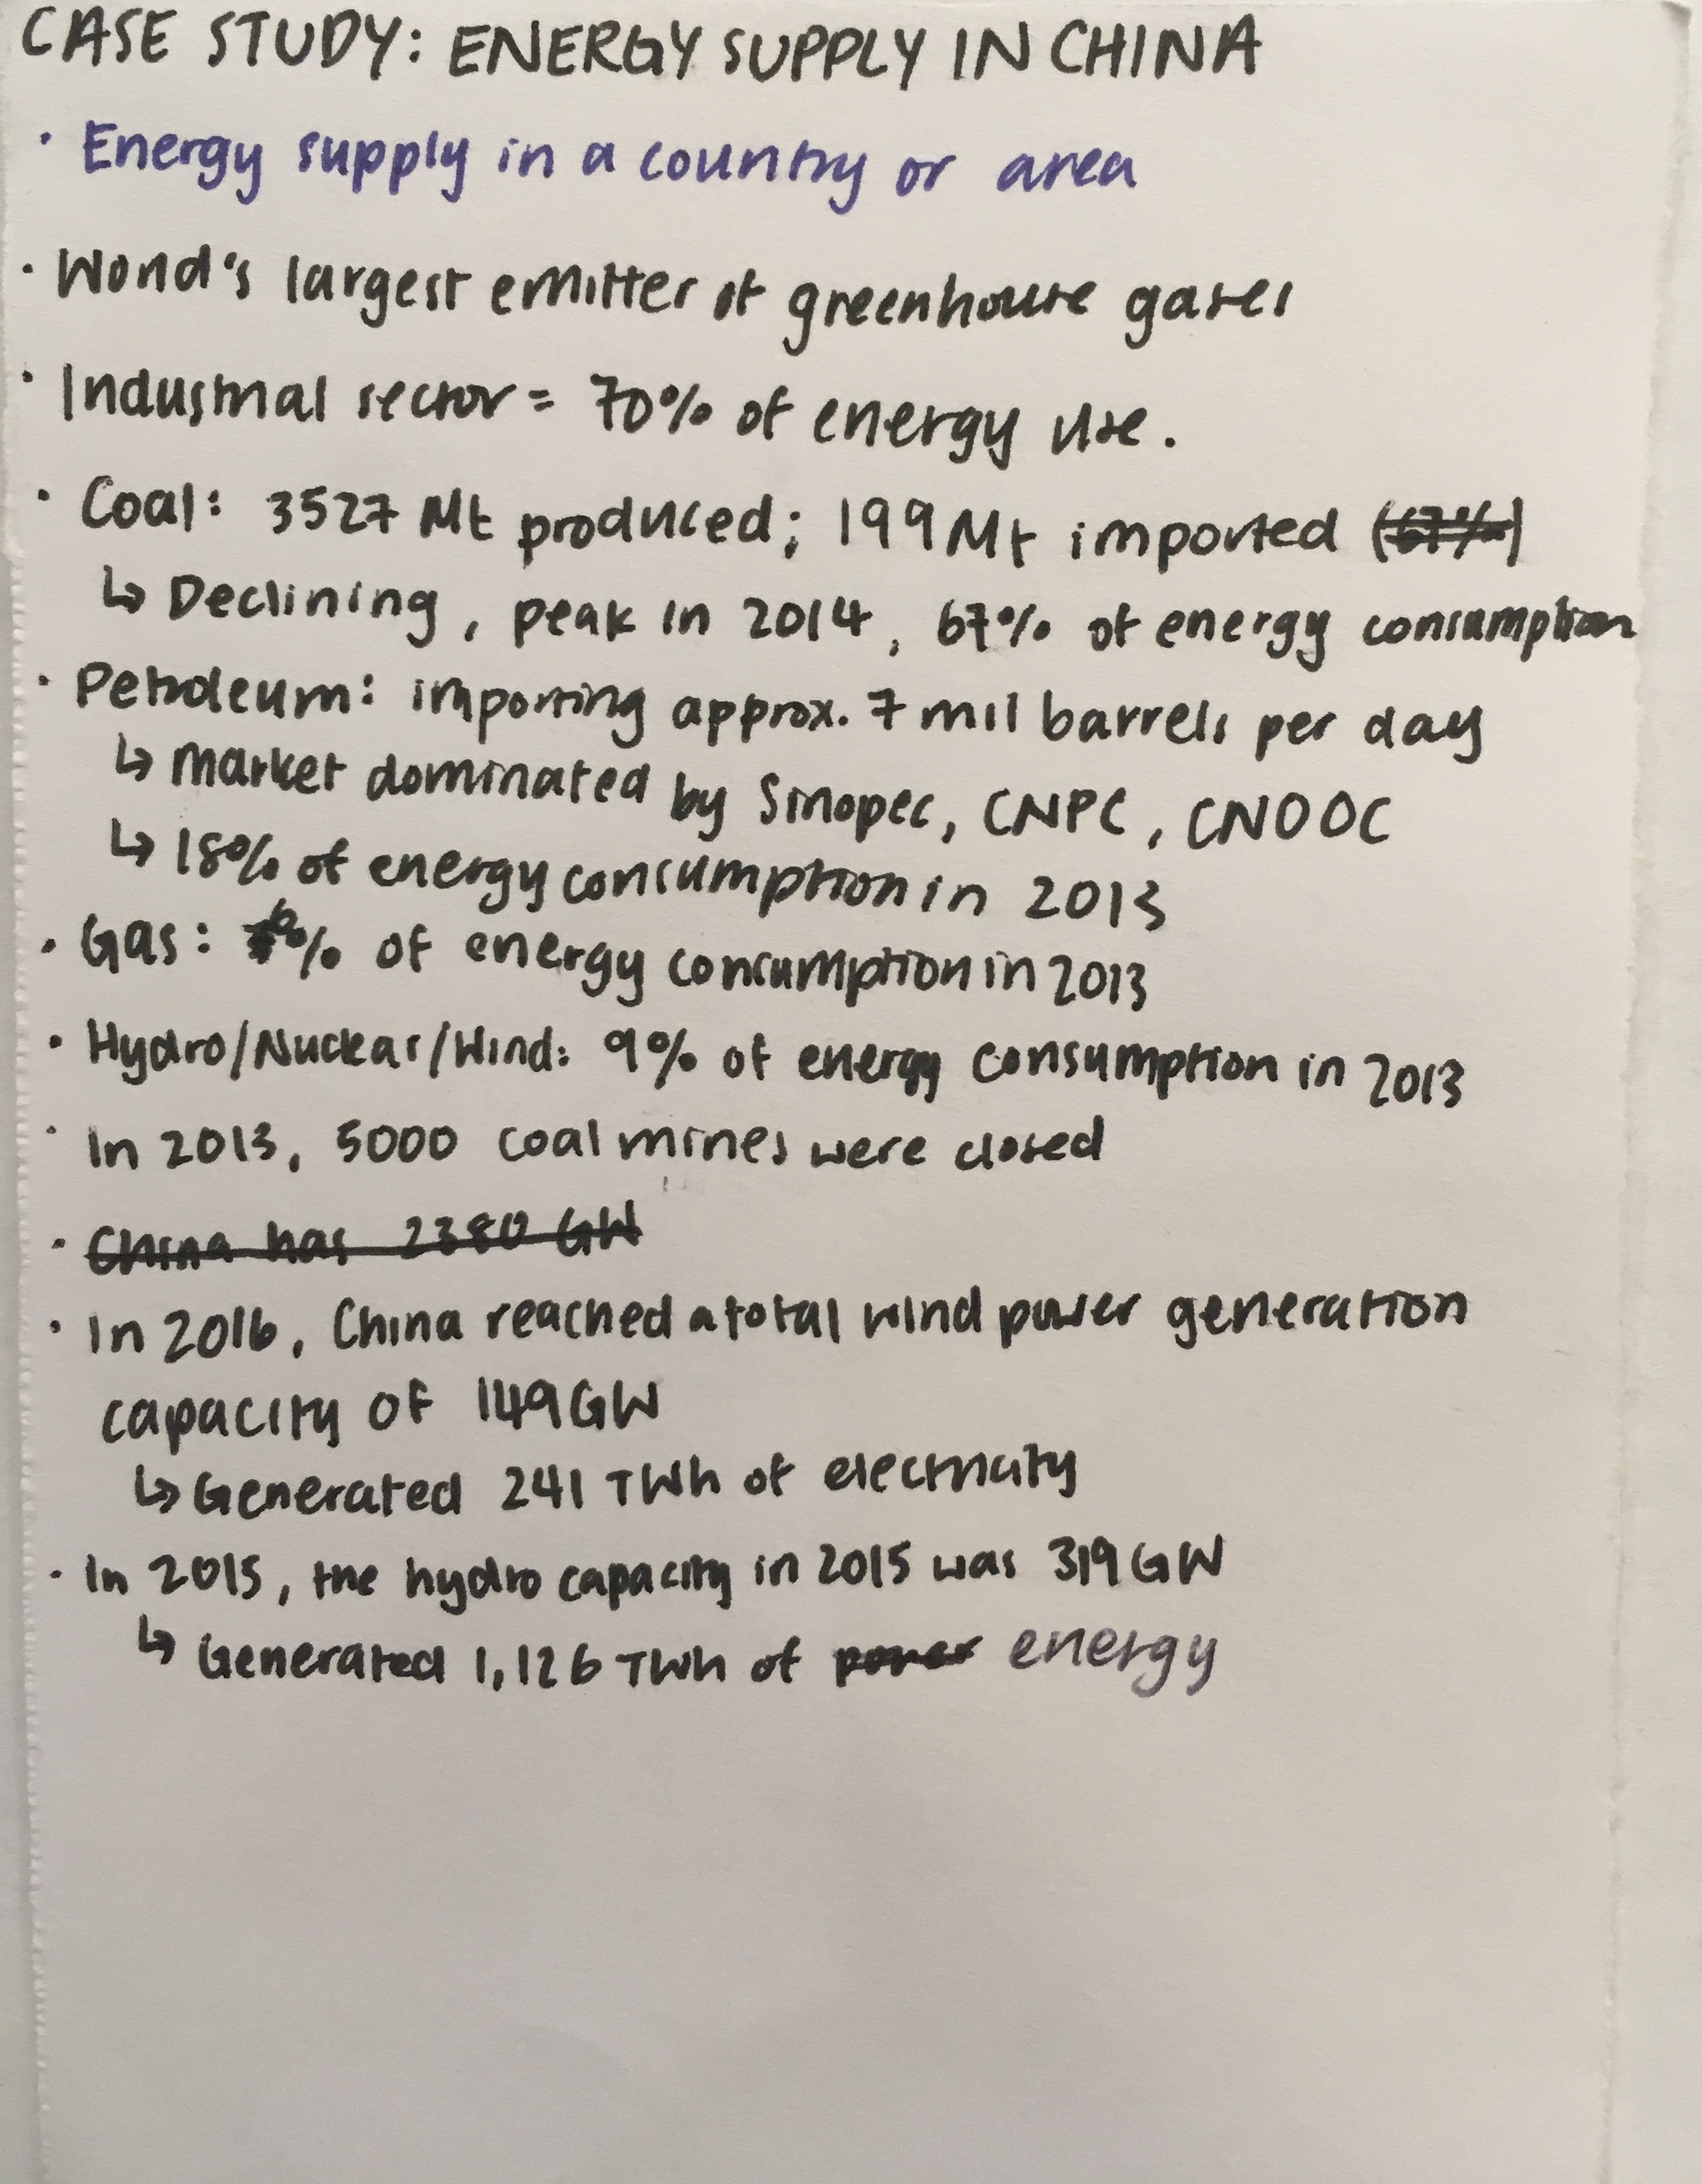 CASE STUDY: ENERGY SUPPLY IN CHINA
· Energy supply in a country or area
· World's largest emitter of greenhouse gases
· Industrial sector = 70% of energy use.
· Coal: 3527 Mt produced; 199 Mt imported (67%)
↳ Declining, peak in 2014, 67% of energy consumption
· Petroleum: importing approx. 7 mil barrels per day
↳ Market dominated by Sinopec, CNPC, CNOOC
↳ 18% of energy consumption in 2013
· Gas: 6% of energy consumption in 2013
· Hydro/Nuclear/Wind: 9% of energy consumption in 2013
· In 2013, 5000 coal mines were closed
· China has 2380 GW
· In 2016, China reached a total wind power generation
capacity of 149GW
↳ Generated 241 TWh of electricity
· In 2015, the hydro capacity in 2015 was 319 GW
↳ Generated 1,126 TWh of power energy